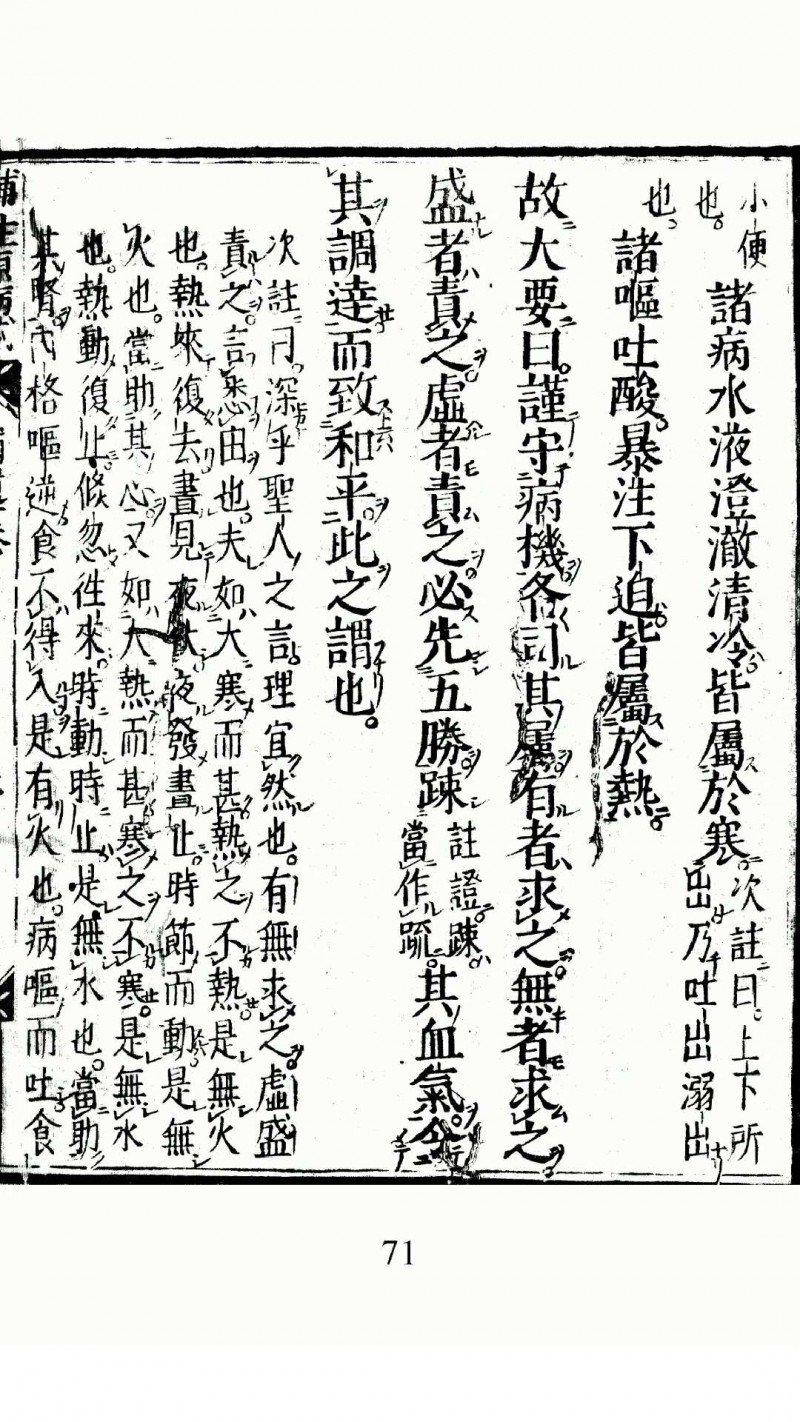 小便
也。 諸病水液澄澈清冷皆屬於寒。次註曰。上下所
出乃吐出溺出
也。
諸嘔吐酸。暴注下迫皆屬於熱。
故大要曰。謹守病機各司其屬有者求之無者求之
盛者責之。虛者責之。必先五勝踈註證。踈
當作疏。其血氣令
其調達而致和平。此之謂也。
次註曰深乎聖人之言理宜然也。有無求之虛盛
責之。言悉由也。夫如大寒而甚熱之不熱是無火
也。熱來復去晝見夜伏夜發晝止。時節而動是無
火也。當助其心又如大熱而甚寒之不寒。是無水
也。熱動復止倐忽往來。時動時止是無水也。當助
其腎內格嘔逆食不得入是有火也。病嘔而吐食
71